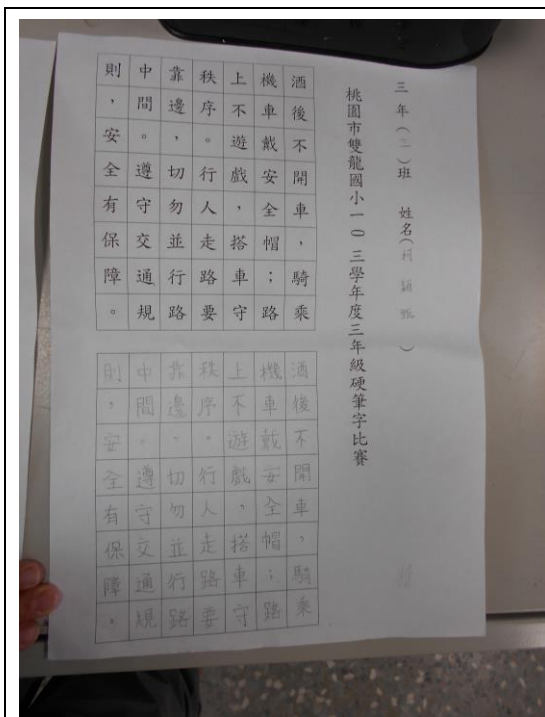 三年（ ）班　姓名（柯 ）
桃園市雙龍國小一〇三學年度三年級硬筆字比賽
酒後不開車，騎乘
機車戴安全帽；路
上不遊戲，搭車守
秩序。行人走路要
靠邊，切勿並行路
中間。遵守交通規
則，安全有保障。
酒後不開車，騎乘
機車戴安全帽；路
上不遊戲，搭車守
秩序。行人走路要
靠邊，切勿並行路
中間。遵守交通規
則，安全有保障。